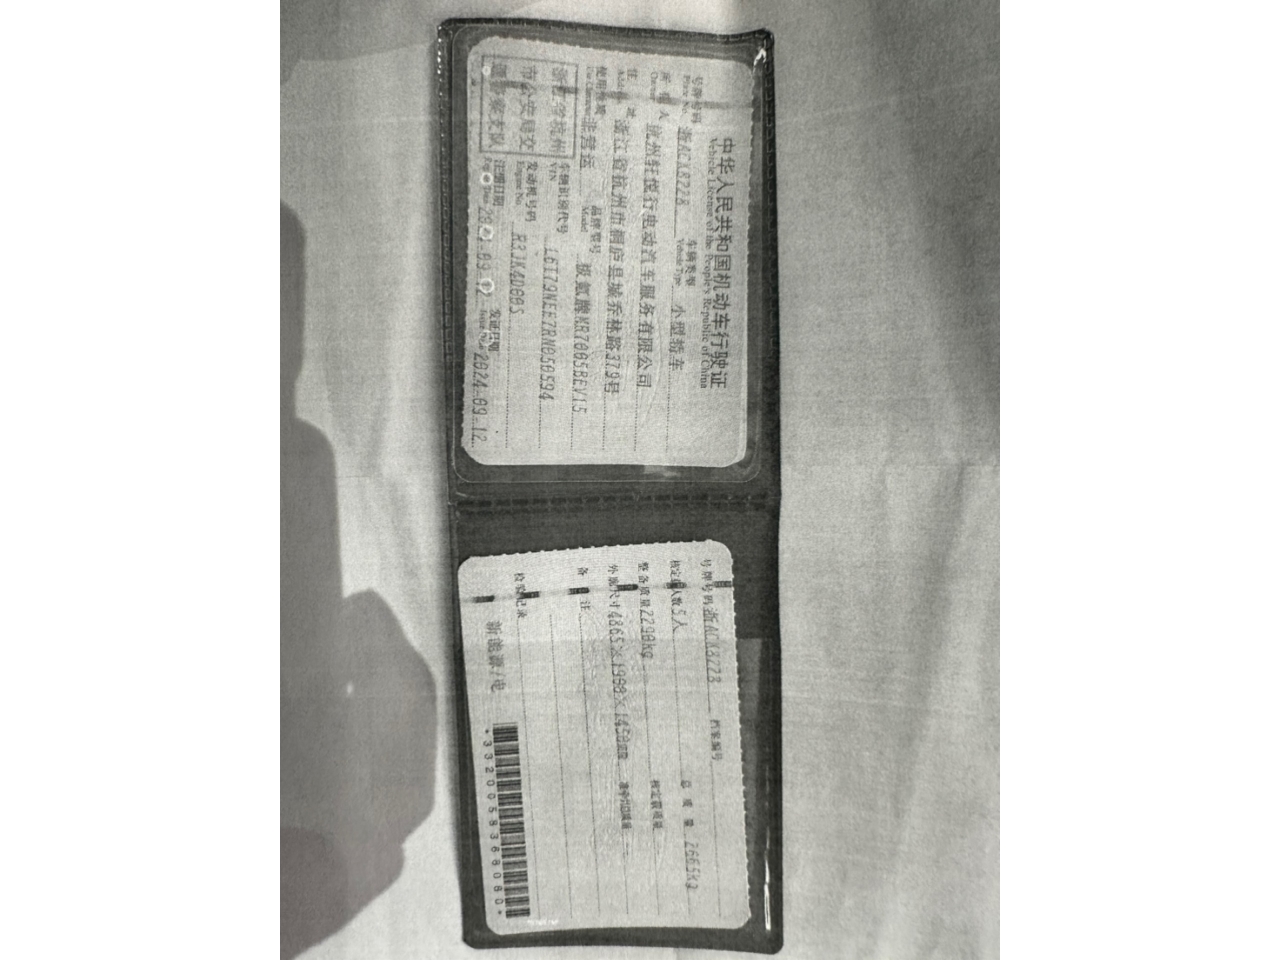 中华人民共和国机动车行驶证
Vehicle License of the People's Republic of China
号牌号码 浙ACX8228 车辆类型 小型轿车
Plate No. Vehicle Type
所有人 杭州轩悦行电动汽车服务有限公司
Owner
住址 浙江省杭州市桐庐县城乔林路379号
Address
使用性质 非营运 品牌型号 极氪牌MR7005BEV15
Use Character Model
浙江省杭州市公安局交通警察支队
车辆识别代号 L6T79NEE7RN050594
VIN
发动机号码
Engine No.
注册日期 发证日期 2024-09-12
号牌号码 浙ACX8228 档案编号
核定载人数 5人 总质量 2665kg
整备质量 2290kg 核定载质量
外廓尺寸 准牵引总质量 --
备注
检验记录
新能源/电